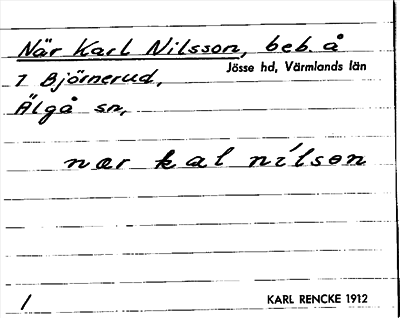 När Karl Nilsson, beb. å
Jösse hd, Värmlands län
7 Björnerud,
Älgå sn,
nær kal nílsøn
1
KARL RENCKE 1912